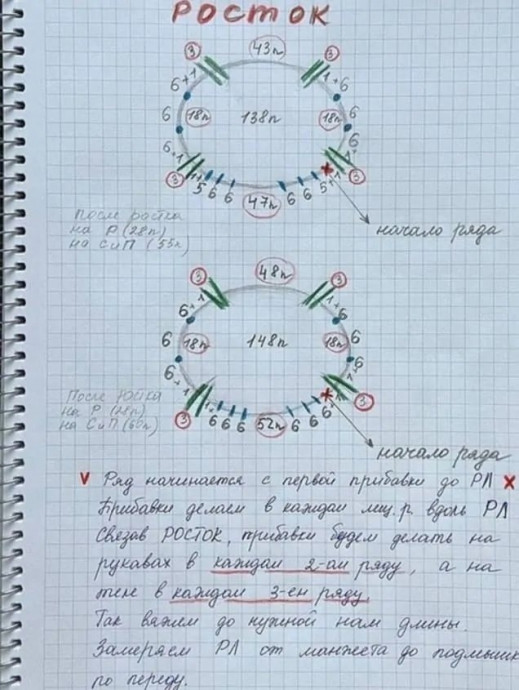 РОСТОК
3 43п 3
6+1 1+6
6 18п 138п 18п 6
6
6+1 1+
3 3
1+5 6 6 47п 6 6 5+1
После ростка
на Р (28п)
на С и П (55п)
начало ряда
3 48п 3
6+1 1+6
6 18п 148п 18п 6
6
6+1 1+
3 3
6 6 6 52п 6 6 6+1
После
на Р (28п)
на С и П (60п)
начало ряда
V Ряд начинается с первой прибавки до РЛ X
Прибавки делаем в каждом лиц.р. вдоль РЛ
Связав РОСТОК, прибавки будем делать на
рукавах в каждом 2-ом ряду, а на
теле в каждом 3-ем ряду.
Так вяжем до нужной нам длины.
Замеряем РЛ от манжета до подмышк
по переду.